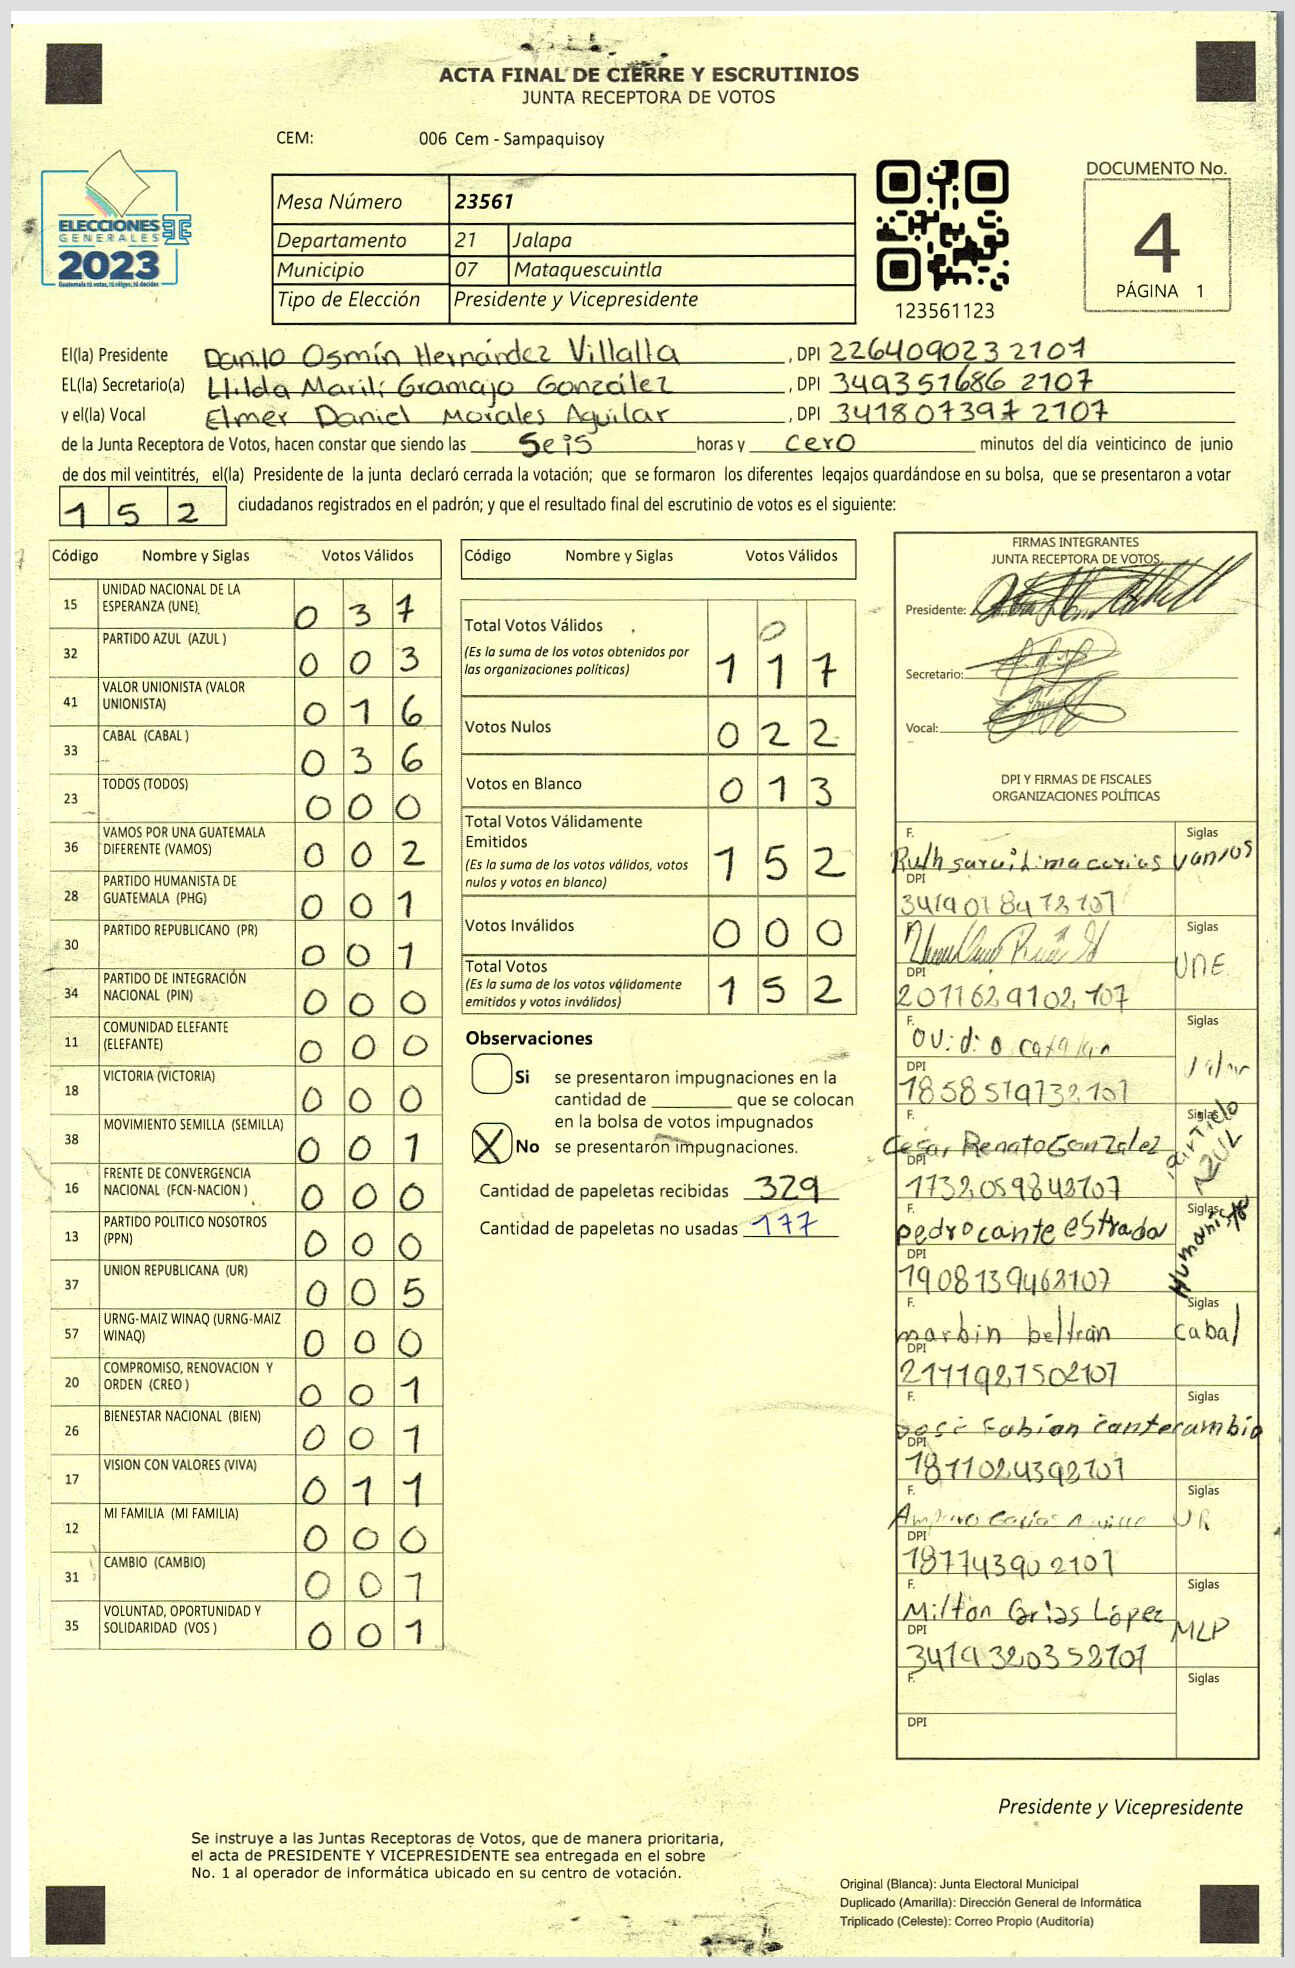 ACTA FINAL DE CIERRE Y ESCRUTINIOS
JUNTA RECEPTORA DE VOTOS
CEM: 006 Cem - Sampaquisoy
ELECCIONES
GENERALES
2023
Guatemala tú votas, tú eliges, tú decides
Mesa Número 23561
Departamento 21 Jalapa
Municipio 07 Mataquescuintla
Tipo de Elección Presidente y Vicepresidente
123561123
DOCUMENTO No.
4
PÁGINA 1
El(la) Presidente Danilo Osmín Hernández Villalta, DPI 2264090232107
EL(la) Secretario(a) Hilda Marilí Gramajo González, DPI 3493516862107
y el(la) Vocal Elmer Daniel Morales Aguilar, DPI 3418073972107
de la Junta Receptora de Votos, hacen constar que siendo las Seis horas y cero minutos del día veinticinco de junio
de dos mil veintitrés, el(la) Presidente de la junta declaró cerrada la votación; que se formaron los diferentes legajos guardándose en su bolsa, que se presentaron a votar
152 ciudadanos registrados en el padrón; y que el resultado final del escrutinio de votos es el siguiente:
Código Nombre y Siglas Votos Válidos
15 UNIDAD NACIONAL DE LA ESPERANZA (UNE) 037
32 PARTIDO AZUL (AZUL ) 003
41 VALOR UNIONISTA (VALOR UNIONISTA) 016
33 CABAL (CABAL ) 036
23 TODOS (TODOS) 000
36 VAMOS POR UNA GUATEMALA DIFERENTE (VAMOS) 002
28 PARTIDO HUMANISTA DE GUATEMALA (PHG) 001
30 PARTIDO REPUBLICANO (PR) 001
34 PARTIDO DE INTEGRACIÓN NACIONAL (PIN) 000
11 COMUNIDAD ELEFANTE (ELEFANTE) 000
18 VICTORIA (VICTORIA) 000
38 MOVIMIENTO SEMILLA (SEMILLA) 001
16 FRENTE DE CONVERGENCIA NACIONAL (FCN-NACION ) 000
13 PARTIDO POLITICO NOSOTROS (PPN) 000
37 UNION REPUBLICANA (UR) 005
57 URNG-MAIZ WINAQ (URNG-MAIZ WINAQ) 000
20 COMPROMISO, RENOVACION Y ORDEN (CREO ) 001
26 BIENESTAR NACIONAL (BIEN) 001
17 VISION CON VALORES (VIVA) 011
12 MI FAMILIA (MI FAMILIA) 000
31 CAMBIO (CAMBIO) 001
35 VOLUNTAD, OPORTUNIDAD Y SOLIDARIDAD (VOS ) 001
Código Nombre y Siglas Votos Válidos
Total Votos Válidos 0
(Es la suma de los votos obtenidos por
las organizaciones políticas) 117
Votos Nulos 022
Votos en Blanco 013
Total Votos Válidamente
Emitidos
(Es la suma de los votos válidos, votos
nulos y votos en blanco) 152
Votos Inválidos 000
Total Votos
(Es la suma de los votos válidamente
emitidos y votos inválidos) 152
Observaciones
Si se presentaron impugnaciones en la
cantidad de ________ que se colocan
en la bolsa de votos impugnados
X No se presentaron impugnaciones.
Cantidad de papeletas recibidas 329
Cantidad de papeletas no usadas 177
FIRMAS INTEGRANTES
JUNTA RECEPTORA DE VOTOS
Presidente:
Secretario:
Vocal:
DPI Y FIRMAS DE FISCALES
ORGANIZACIONES POLÍTICAS
F. Siglas
Ruth
DPI
F. Siglas
UNE
DPI
2011629102107
F. Siglas
Ovidio catalan
DPI
1858519732101
F. Siglas
Cesar Renato Gonzalez AZUL
DPI
1732059842107
F. Siglas
pedro cante estrada Humanista
DPI
1908139462107
F. Siglas
marbin beltran cabal
DPI
2111927502107
F. Siglas
José Fabian cante cambio
DPI
1811024392101
F. Siglas
UR
DPI
187743902101
F. Siglas
Milton Arias López MLP
DPI
3419320352101
F. Siglas
DPI
Presidente y Vicepresidente
Se instruye a las Juntas Receptoras de Votos, que de manera prioritaria,
el acta de PRESIDENTE Y VICEPRESIDENTE sea entregada en el sobre
No. 1 al operador de informática ubicado en su centro de votación.
Original (Blanca): Junta Electoral Municipal
Duplicado (Amarilla): Dirección General de Informática
Triplicado (Celeste): Correo Propio (Auditoría)